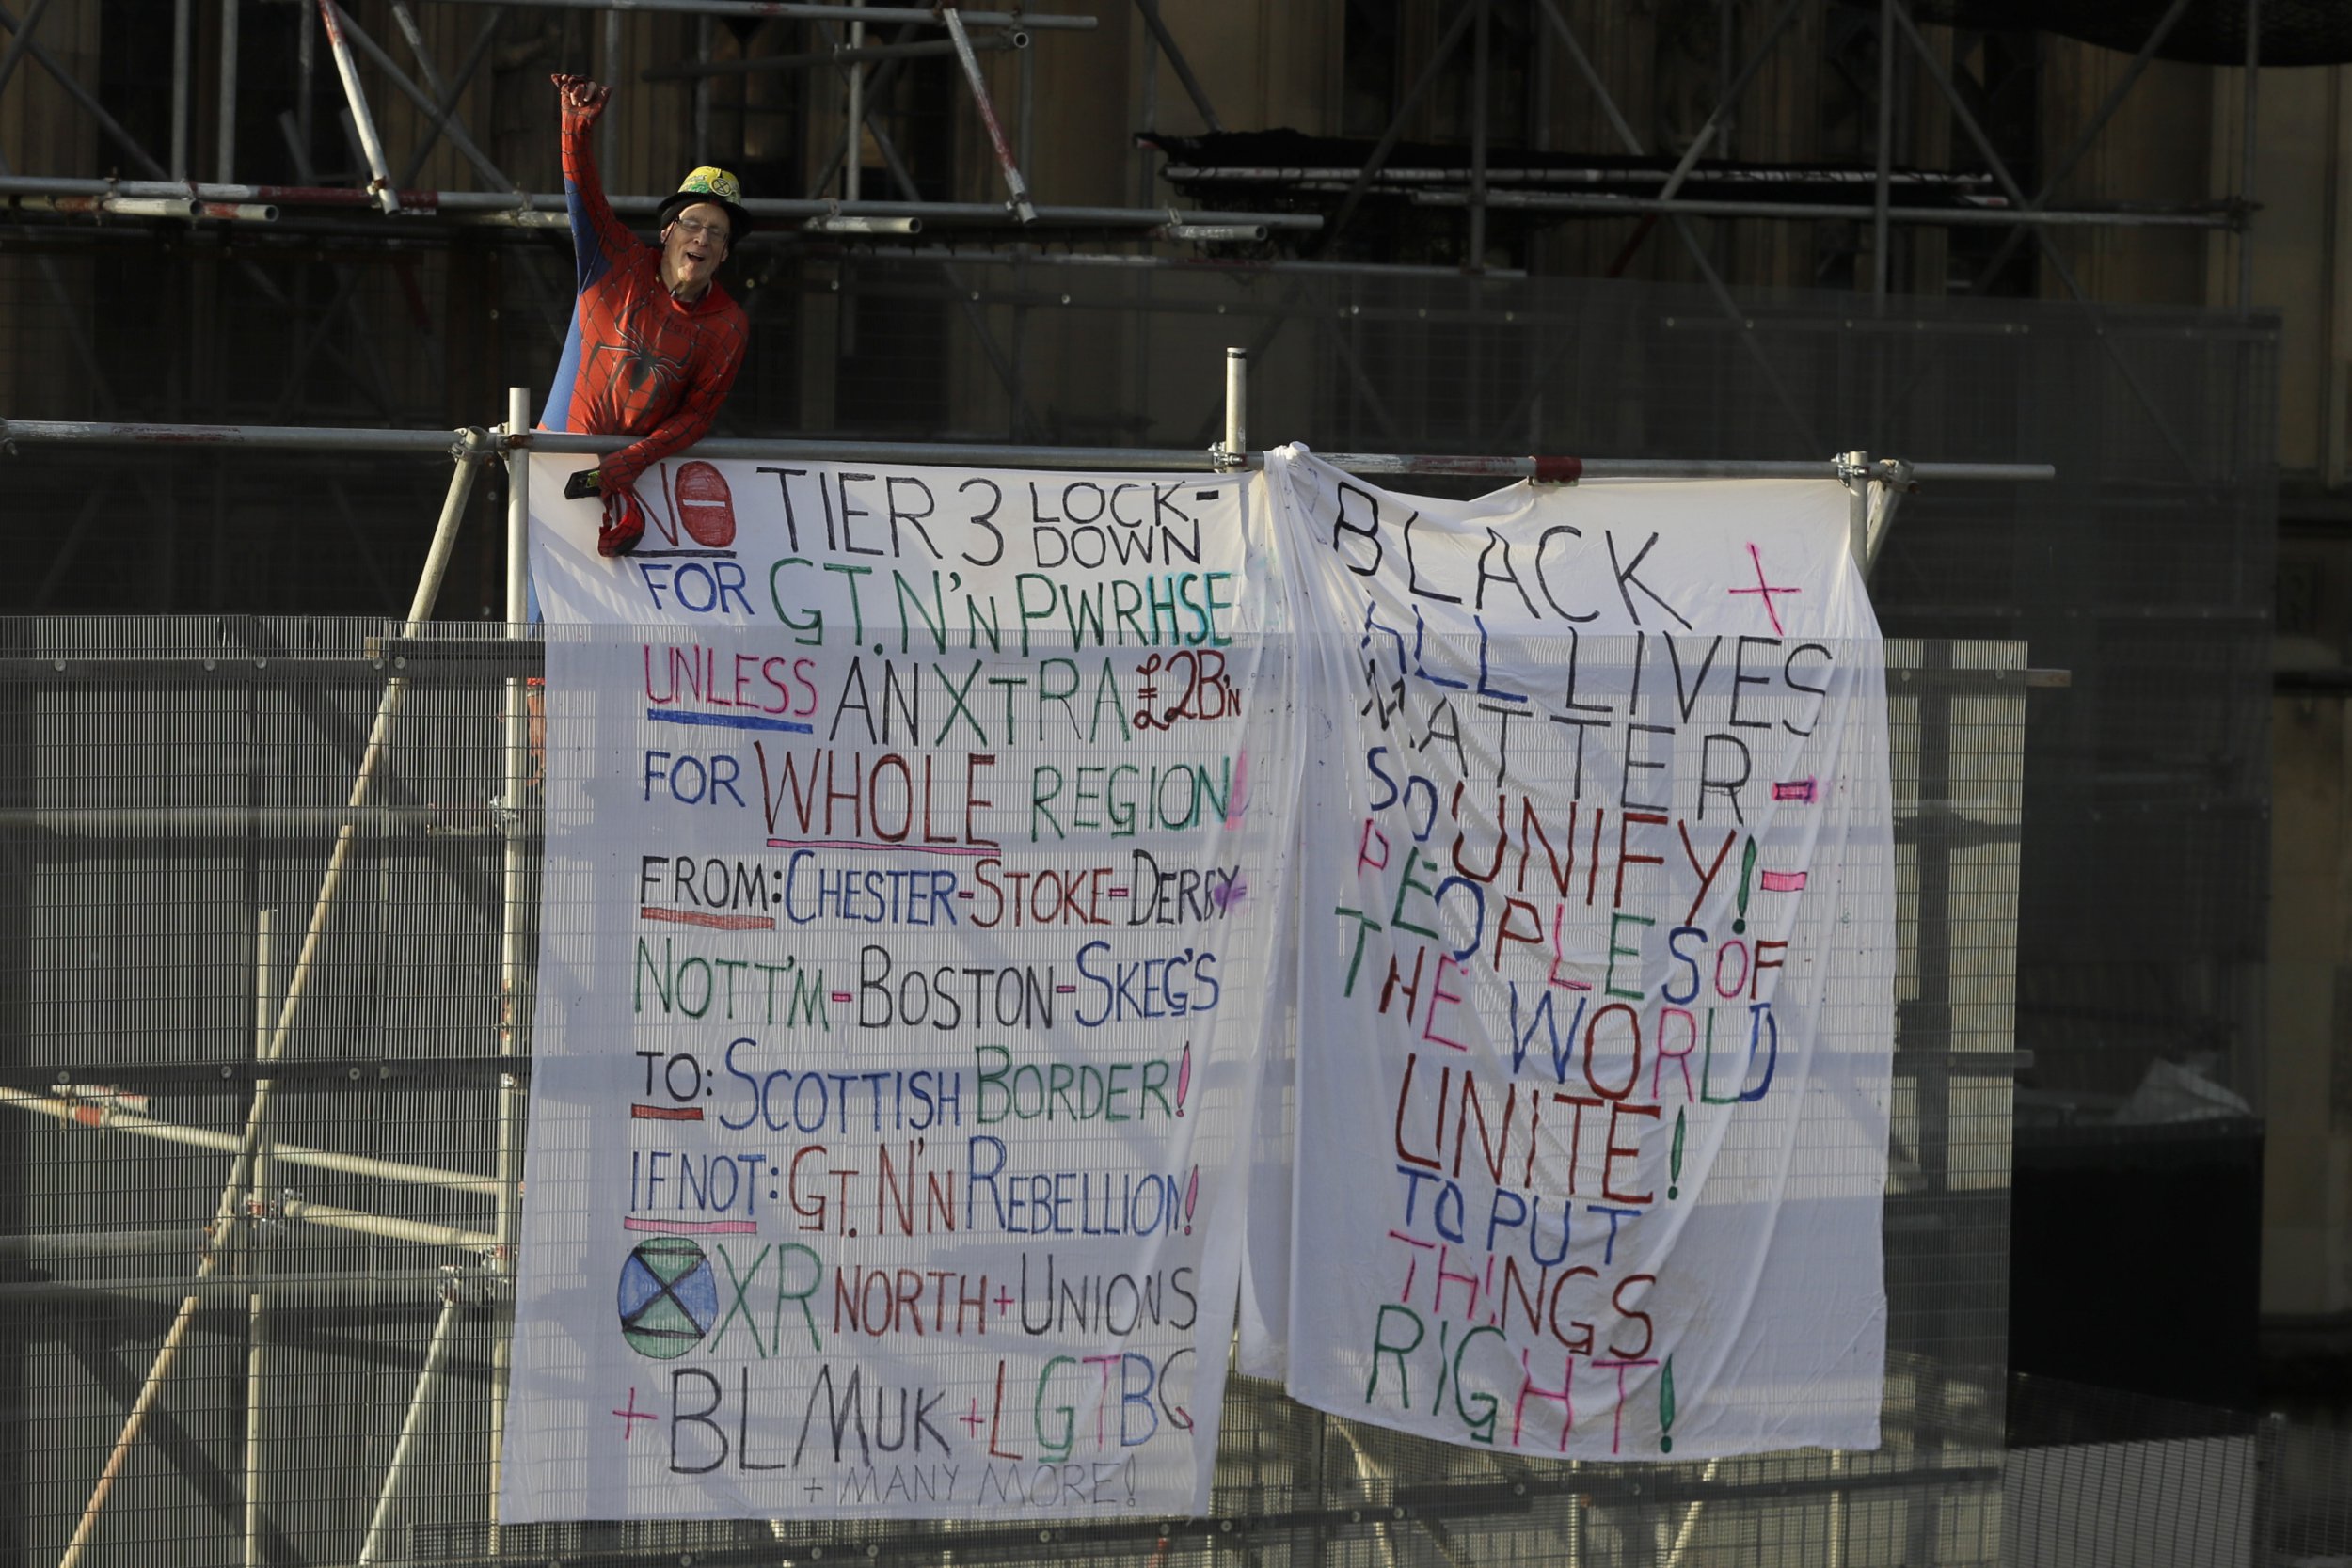 NO TIER 3 LOCK-
DOWN
FOR GT. N'N PWRHSE
UNLESS AN XTRA £2B'N
FOR WHOLE REGION
FROM: CHESTER-STOKE-DERBY-
NOTT'M-BOSTON-SKEG'S
TO: SCOTTISH BORDER!
IF NOT: GT. N'N REBELLION!
XR NORTH + UNIONS
+ BLMUK + LGTBC
+ MANY MORE!
BLACK +
ALL LIVES
MATTER-
SO UNIFY!-
PEOPLES OF
THE WORLD
UNITE!
TO PUT
THINGS
RIGHT!